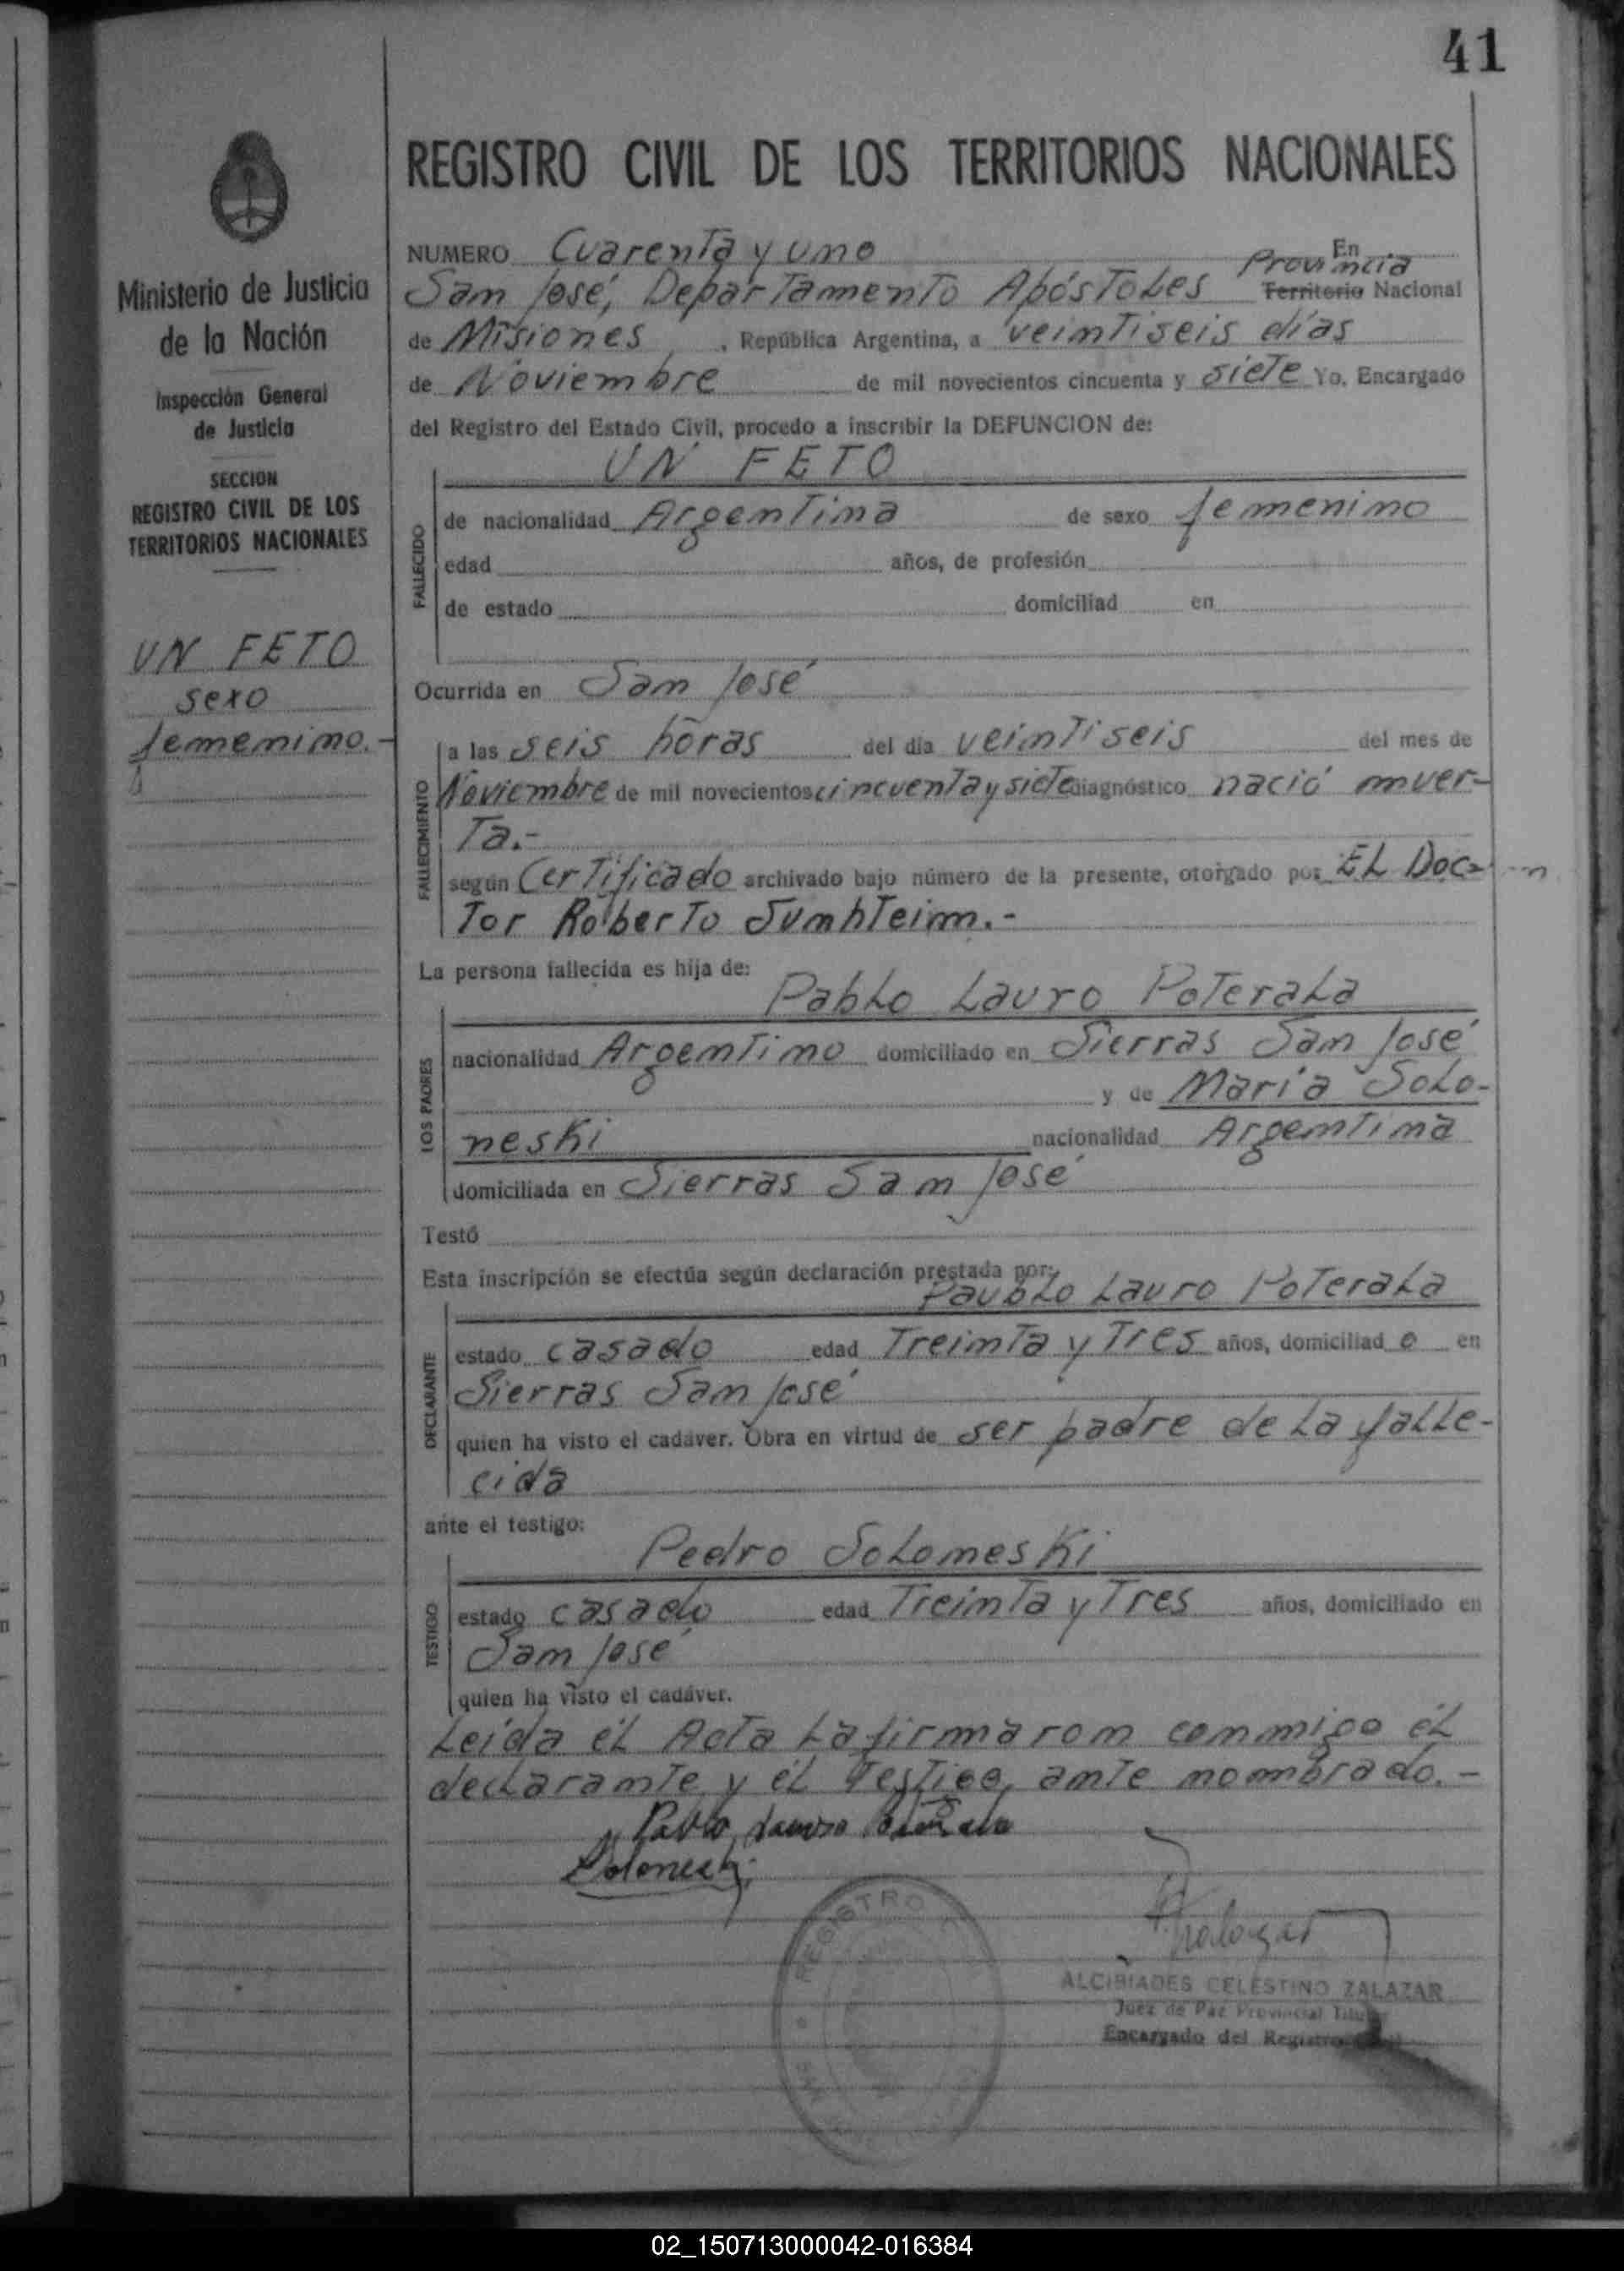 41
REGISTRO CIVIL DE LOS TERRITORIOS NACIONALES
Ministerio de Justicia
de la Nación
Inspección General
de Justicia
SECCION
REGISTRO CIVIL DE LOS
TERRITORIOS NACIONALES
UN FETO
sexo
femenino.-
NUMERO Cuarenta y uno En
San José, Departamento Apóstoles Provincia Territorio Nacional
de Misiones, República Argentina, a veintiseis días
de Noviembre de mil novecientos cincuenta y siete Yo, Encargado
del Registro del Estado Civil, procedo a inscribir la DEFUNCION de:
UN FETO
FALLECIDO
de nacionalidad Argentina de sexo femenino
edad años, de profesión
de estado domiciliad en
Ocurrida en San José
FALLECIMIENTO
a las seis horas del día veintiseis del mes de
Noviembre de mil novecientos cincuenta y siete diagnóstico nació muer-
ta.-
según Certificado archivado bajo número de la presente, otorgado por EL Doc-
tor Roberto
La persona fallecida es hija de:
Pablo Lauro Poterala
LOS PADRES
nacionalidad Argentino domiciliado en Sierras San José
y de María Solo-
neski nacionalidad Argentina
domiciliada en Sierras San José
Testó
Esta inscripción se efectúa según declaración prestada por:
Paublo Lauro Poterala
DECLARANTE
estado casado edad Treinta y Tres años, domiciliad o en
Sierras San José
quien ha visto el cadáver. Obra en virtud de ser padre de la falle-
cida
ante el testigo:
Pedro Soloneski
TESTIGO
estado casado edad Treinta y Tres años, domiciliado en
San José
quien ha visto el cadáver.
Leída él Acta la firmaron conmigo él
declarante y él Testigo, ante nombrado.-
Pablo Lauro Poterala
Soloneski
REGISTRO
ALCIBIADES CELESTINO ZALAZAR
Juez de Paz Provincial Titular
Encargado del Registro
02_150713000042-016384